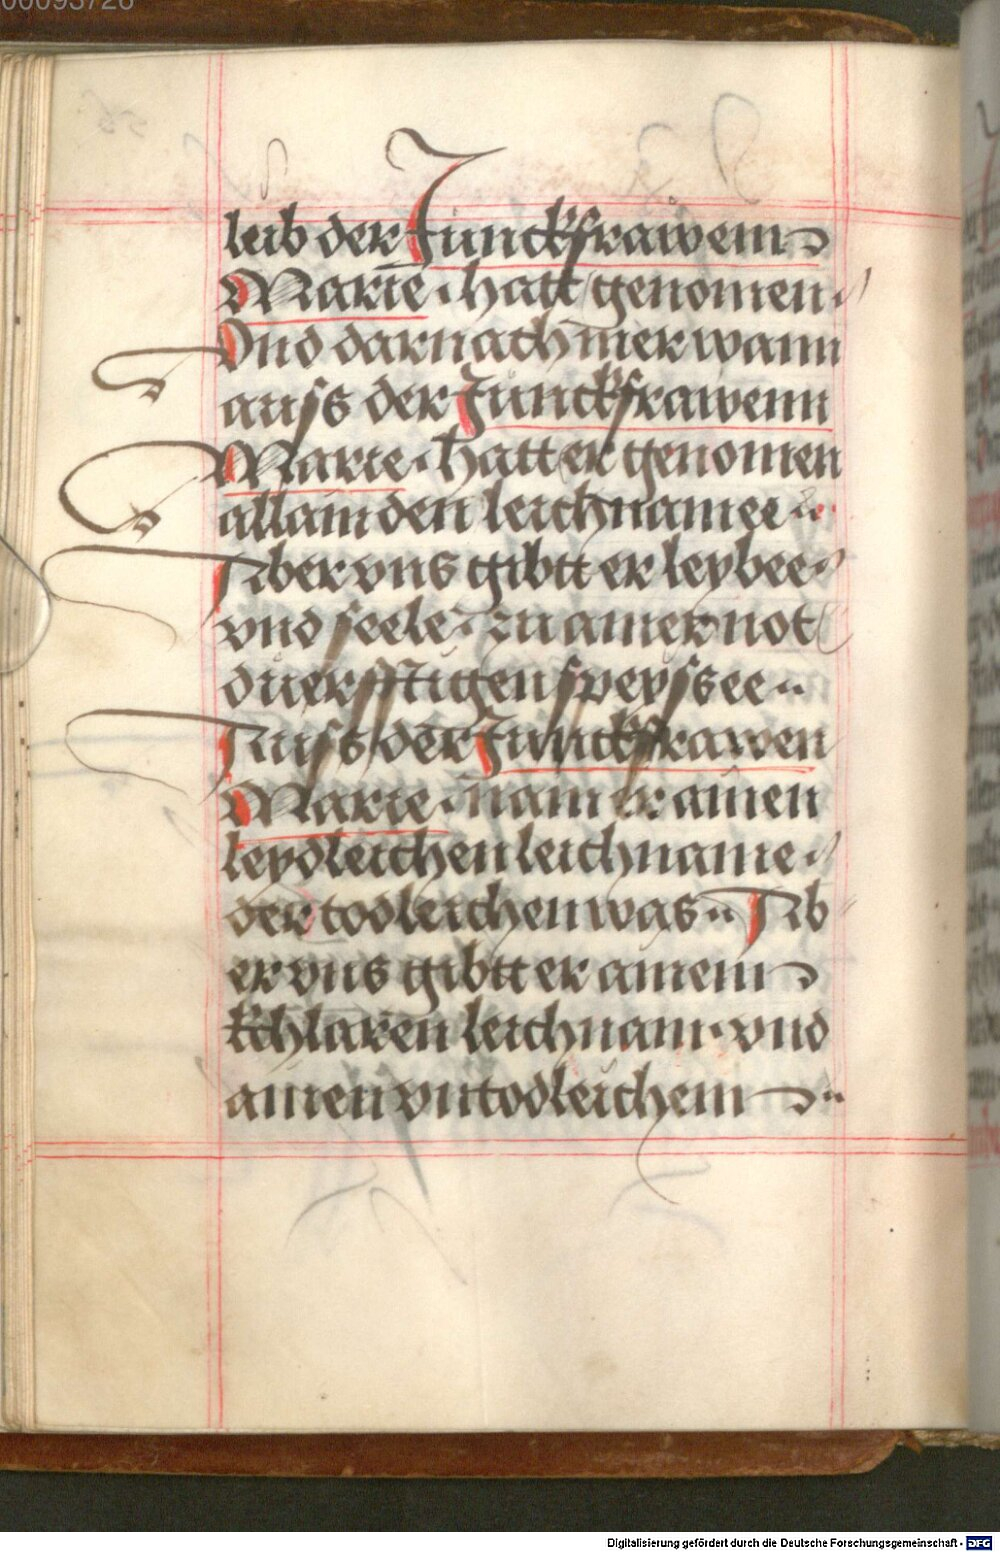 00093726
leib der Junckfrawenn
Marie · hatt genomen ·
Vnd darnach mer wann
auſs der Junckfrawenn
Marie · hatt er genomen
allain den leichnamee ··
Aber vns gibtt er leybee ·
vnd ſeele · zu ainer not
duerfftigen ſpeyſsee ··
Auſs der Junckfrawen
Marie · nam er ainen
leydleichen leichname ·
der todleichen was ·· Ab
er vns gibtt er ainenn
kchlaren leichnam · vnd
ainen vntodleichenn ··
Digitalisierung gefördert durch die Deutsche Forschungsgemeinschaft - DFG